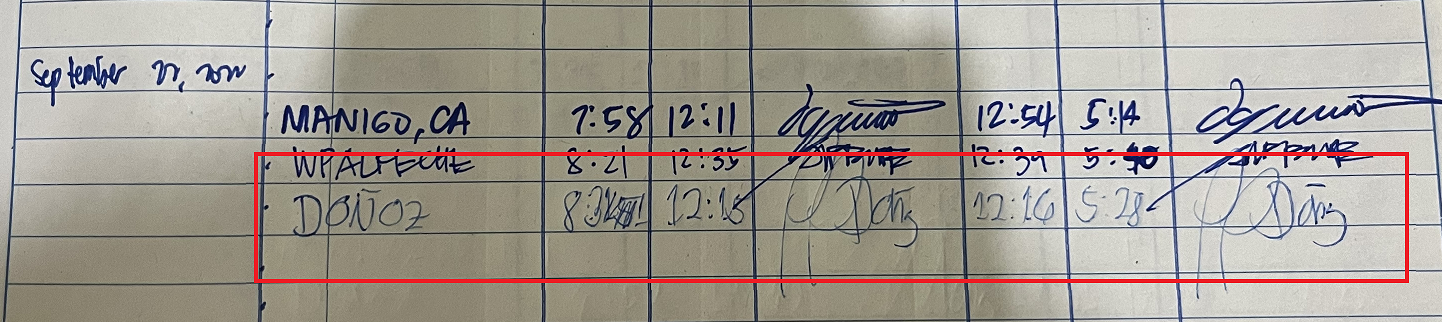 September 22, 2022
MANIGO, CA 7:58 12:11 12:54 5:14
WPALFECHE 8:21 12:35 12:39
DOÑOZ 12:15 12:16 5:28